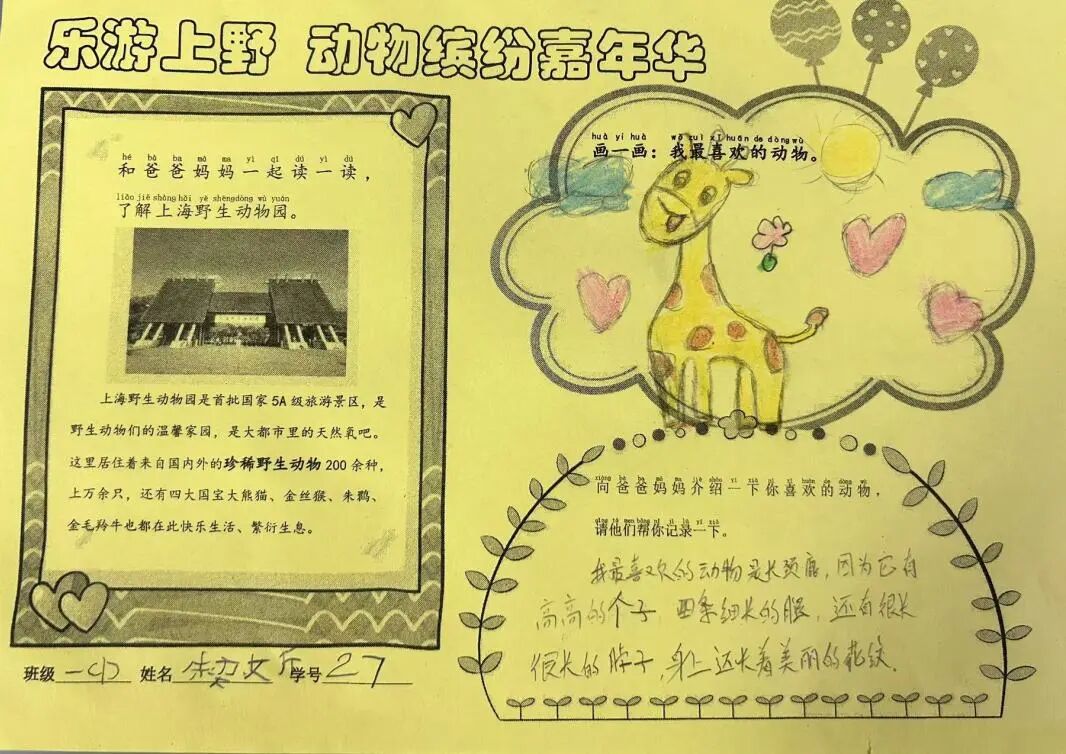 乐游上野 动物缤纷嘉年华
hé bà ba mā ma yì qǐ dú yì dú
和爸爸妈妈一起读一读，
liǎo jiě shàng hǎi yě shēng dòng wù yuán
了解上海野生动物园。
上海野生动物园是首批国家5A级旅游景区，是
野生动物们的温馨家园，是大都市里的天然氧吧。
这里居住着来自国内外的珍稀野生动物200余种，
上万余只，还有四大国宝大熊猫、金丝猴、朱鹮、
金毛羚牛也都在此快乐生活、繁衍生息。
班级 一(1) 姓名 文乐 学号 27
huà yi huà wǒ zuì xǐ huān de dòng wù
画一画：我最喜欢的动物。
向爸爸妈妈介绍一下你喜欢的动物，
请他们帮你记录一下。
我最喜欢的动物是长颈鹿，因为它有
高高的个子，四条细长的腿，还有很长
很长的脖子，身上还长着美丽的花纹。